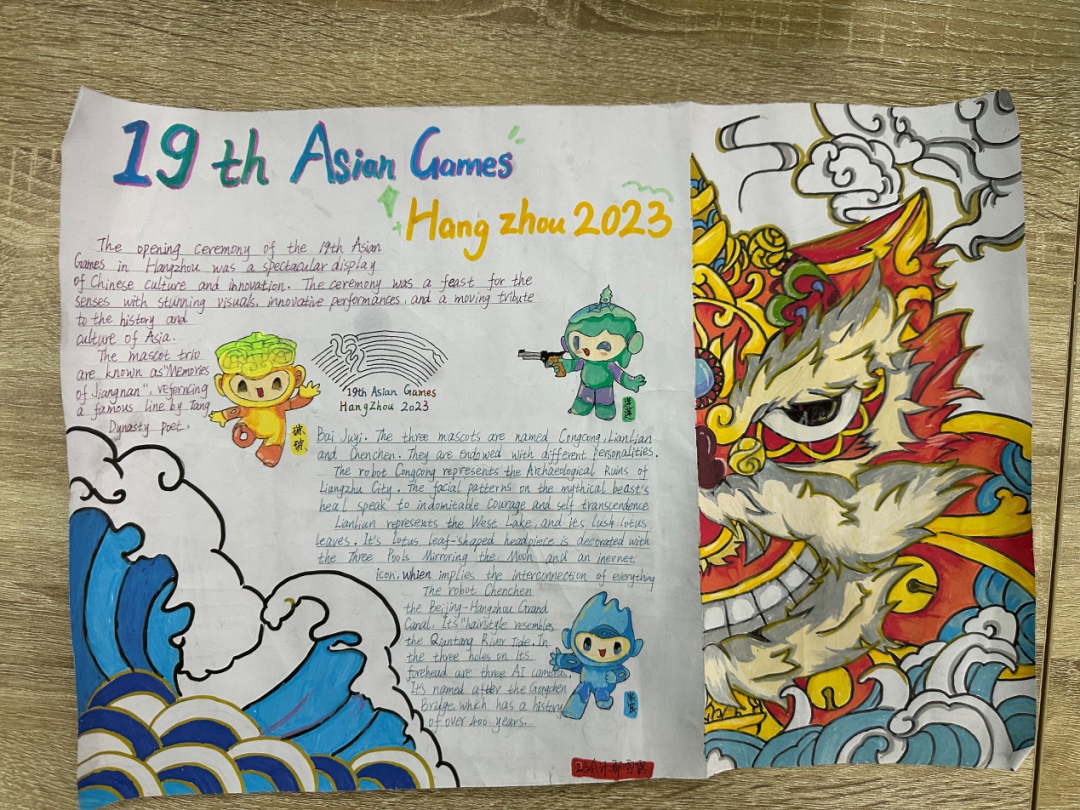 19th Asian Games
Hangzhou 2023
The opening ceremony of the 19th Asian
Games in Hangzhou was a spectacular display
of Chinese culture and innovation. The ceremony was a feast for the
senses with stunning visuals, innovative performances, and a moving tribute
to the history and
culture of Asia.
The mascot trio
are known as "Memories
of Jiangnan", referncing
a famous line by Tang
Dynasty poet.
19th Asian Games
HangZhou 2023
琮琮
莲莲
Bai Juyi. The three mascots are named Congcong, LianLian
and Chenchen. They are endowed with different personalities.
The robot Congcong represents the Archaeological Ruins of
Liangzhu City. The facial patterns on the mythical beast's
heal speak to indomitable courage and self transcendence
Lianlian represents the West Lake, and its lush lotus
leaves. It's lotus leaf-shaped headpiece is decorated with
the Three Pools Mirroring the Moon and an inernet
icon. which implies the interconnection of everything
The robot Chenchen
the Beijing-Hangzhou Grand
Canal. Its "hairstyle resembles
the Qiantang River Tide. In
the three holes on its
forehead are three AI cameras.
It's named after the Gongchen
Bridge, which has a history
of over 400 years.
宸宸